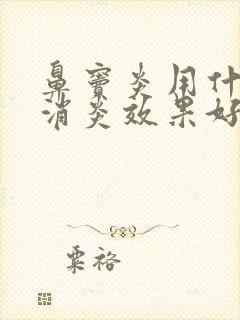 鼻窦炎用什
消炎效果好
粟裕